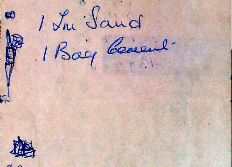 1 Ln Sand
1 Bag Cement